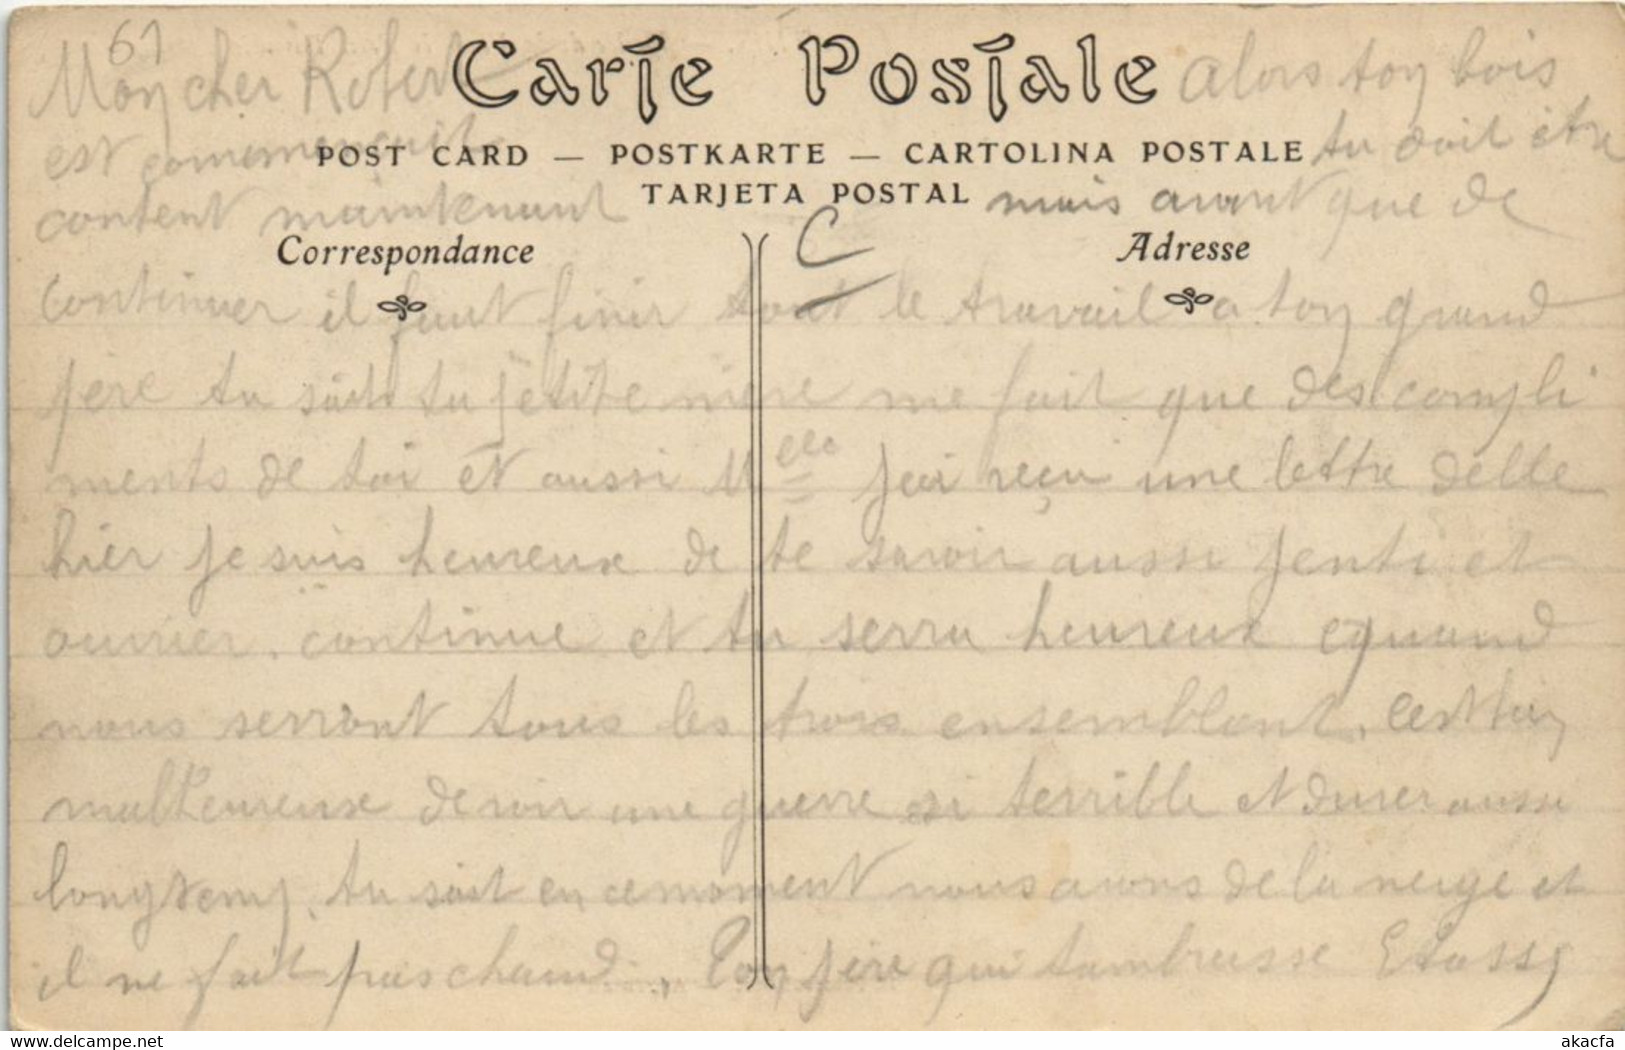 61
Carte Postale
Mon cher Robert alors ton bois
POST CARD — POSTKARTE — CARTOLINA POSTALE
est tu doit être
TARJETA POSTAL
content maintenant mais avant que de
Correspondance
C
Adresse
continuer il faut finir tout le travail a ton grand
père tu sait ta petite mère me fait que des compli
ments de toi et aussi Melle jai reçu une lettre delle
hier je suis heureux de te savoir aussi jenti et
ouvrier. continue et tu serra heureux quand
nous serront tous les trois ensemblant. cest bien
malheureux de voir une guerre si terrible et durer aussi
longtemp. tu sait en ce moment nous avons de la neige et
il ne fait pas chaud. Ton père qui tambrasse
akacfa
www.delcampe.net